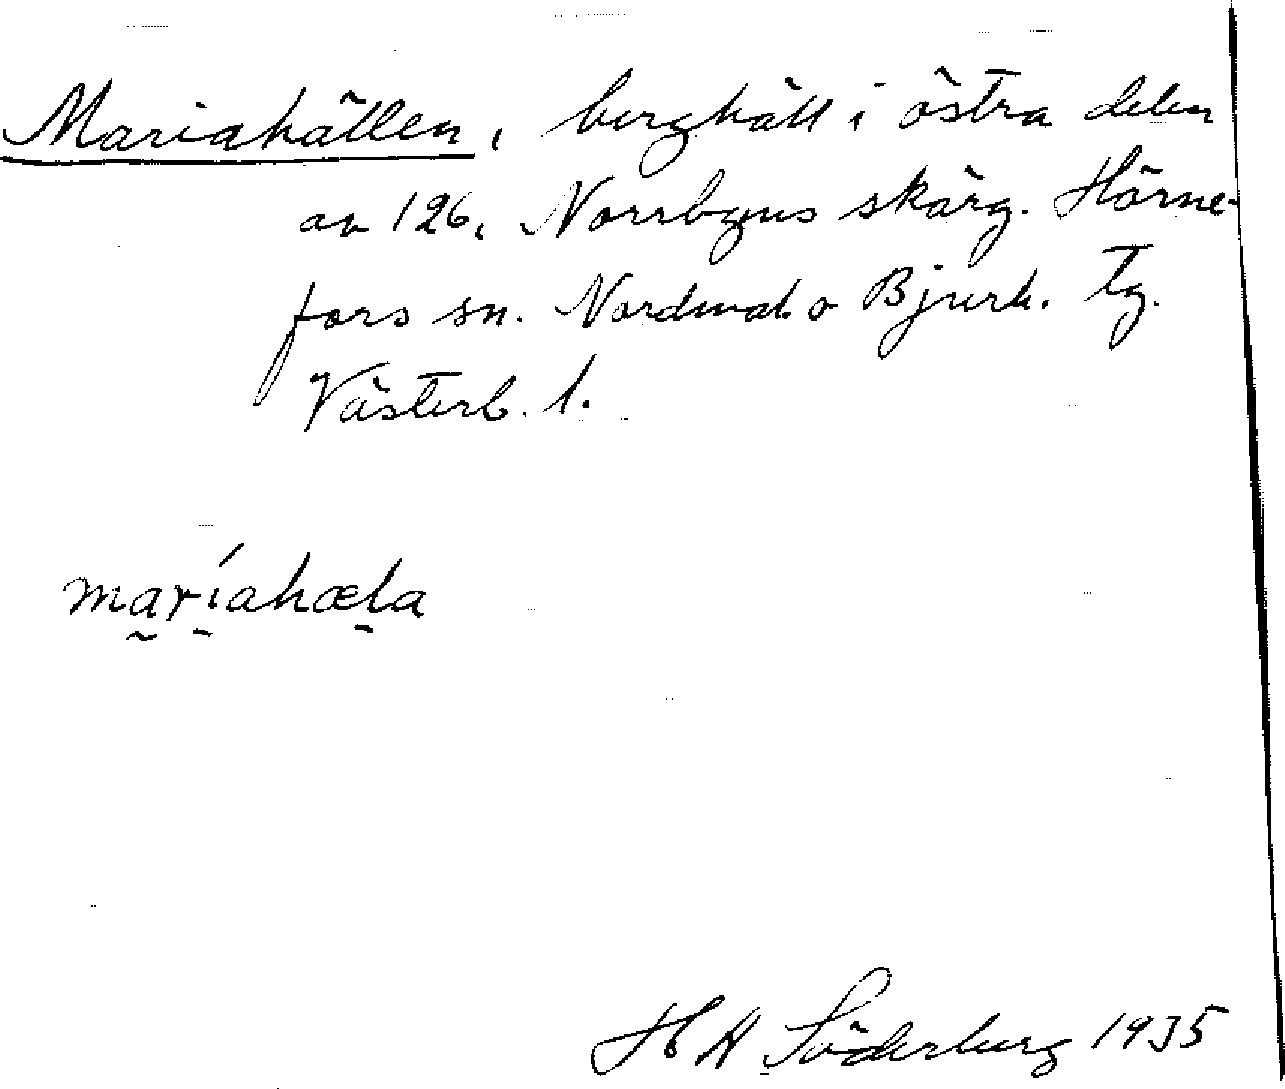 Mariahällen, berghäll i östra delen
av 126, Norrbyns skärg. Hörne-
fors sn. Nordmal. o Bjurh. tg.
Västerb. l.
maríahæla
H A Söderberg 1935